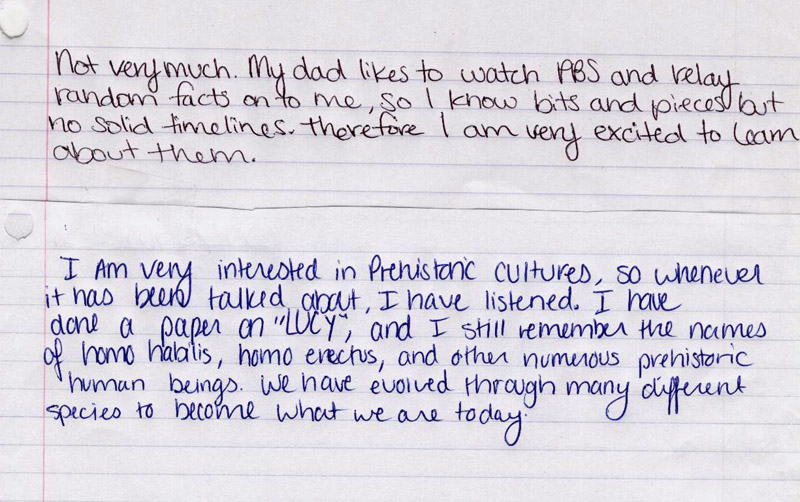 Not very much. My dad likes to watch PBS and relay
random facts on to me, so I know bits and pieces but
no solid timelines. Therefore I am very excited to learn
about them.
I Am very interested in Prehistoric cultures, so whenever
it has been talked about, I have listened. I have
done a paper on "LUCY", and I still remember the names
of homo habilis, homo erectus, and other numerous prehistoric
human beings. We have evolved through many different
species to become what we are today.